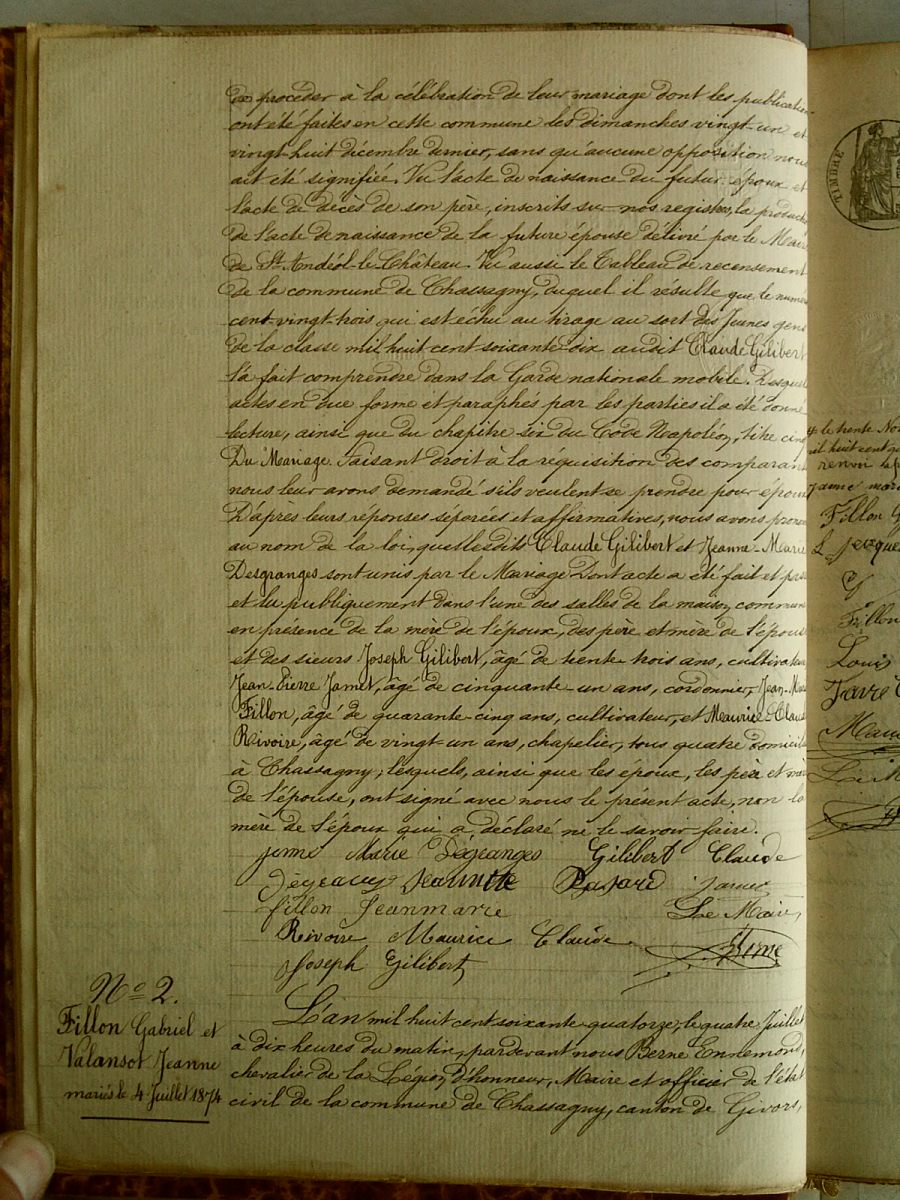 de procéder à la célébration de leur mariage dont les publication
ont été faites en cette commune les dimanches vingt-un et
vingt-huit décembre dernier, sans qu'aucune opposition nous
ait été signifiée. Vu l'acte de naissance du futur époux et
l'acte de décès de son père, inscrits sur nos registres, la production
de l'acte de naissance de la future épouse délivré par le Maire
de St Andéol-le-Château. Vu aussi le Tableau de recensement
de la commune de Chassagny, duquel il résulte que le numéro
cent-vingt-trois qui est échu au tirage au sort des Jeunes gens
de la classe mil huit cent soixante-dix audit Claude Gilibert
l'a fait comprendre dans la Garde nationale mobile. Desquels
actes en due forme et paraphés par les parties il a été donné
lecture, ainsi que du chapitre six du Code Napoléon, titre cinq
Du Mariage. Faisant droit à la réquisition des comparants
nous leur avons demandé s'ils veulent se prendre pour époux
D'après leurs réponses séparées et affirmatives, nous avons prononcé
au nom de la loi, que lesdits Claude Gilibert et Jeanne-Marie
Desgranges sont unis par le Mariage Dont acte a été fait et passé
et lu publiquement dans l'une des salles de la maison commune
en présence de la mère de l'époux, des père et mère de l'épouse
et des sieurs Joseph Gilibert, âgé de trente-trois ans, cultivateur
Jean-Pierre Jamet, âgé de cinquante-un ans, cordonnier, Jean-Marie
Fillon, âgé de quarante-cinq ans, cultivateur, et Maurice-Claude
Rivoire, âgé de vingt-un ans, chapelier, tous quatre domiciliés
à Chassagny, lesquels, ainsi que les époux, les père et mère
de l'épouse, ont signé avec nous le présent acte, non la
mère de l'époux qui a déclaré ne le savoir faire.
jenne Marie Dégranges Gilibert Claude
Jeannette Jamet
fillon Jeanmarie Le Maire,
Rivoire Maurice Claude Berne
Joseph Gilibert
No 2.
Fillon Gabriel et
Valansot Jeanne
mariés le 4 Juillet 1874
L'an mil huit cent soixante-quatorze, le quatre Juillet
à dix heures du matin, pardevant nous Berne Ennemond,
chevalier de la Légion d'honneur, Maire et officier de l'état
civil de la commune de Chassagny, canton de Givors,
TIMBRE
le trente Nov
mil huit cent
renvoi
Fillon G
Fillon
Louis
Favre